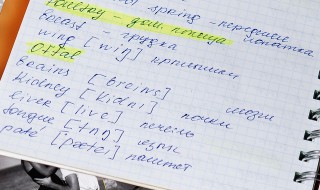 spring - передние
Poultry - дом. птица лопатка
breast - грудка
wing [wiŋ] крылышки
Offal
Brains [breins] мозги
Kidney [kidni] почки
Liver [live] печень
Tongue [tʌŋ] язык
paté [pætei] паштет